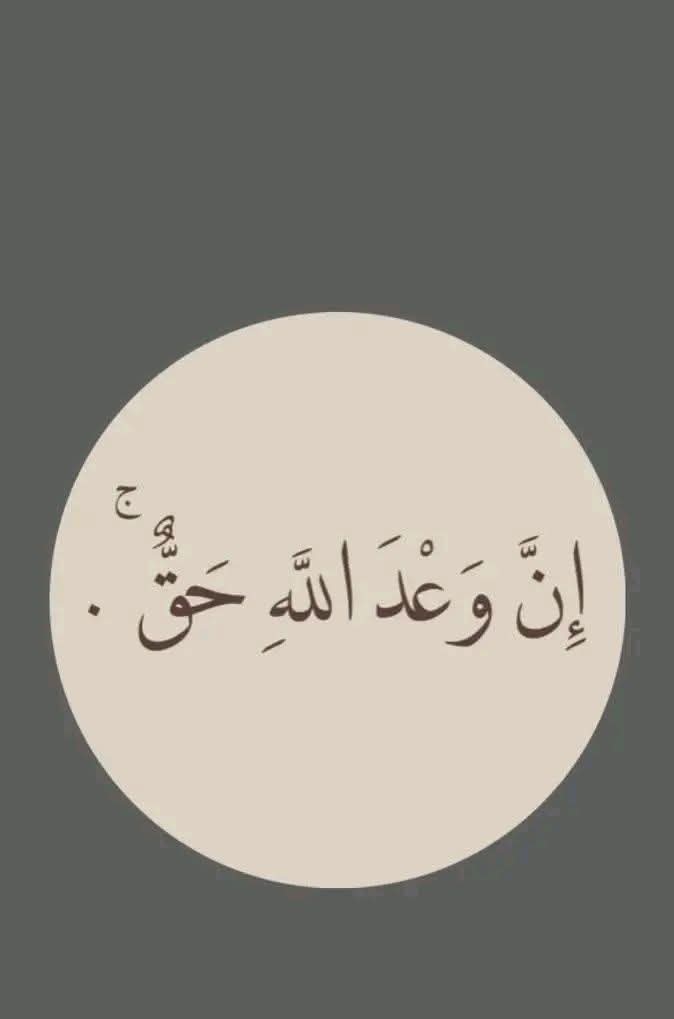 إِنَّ وَعْدَ اللَّهِ حَقٌّ ۚ .